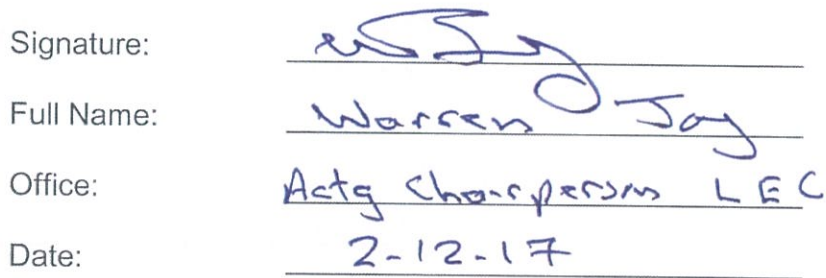 Signature:
Full Name: Warren Joy
Office: Actg Chairperson LEC
Date: 2-12-17